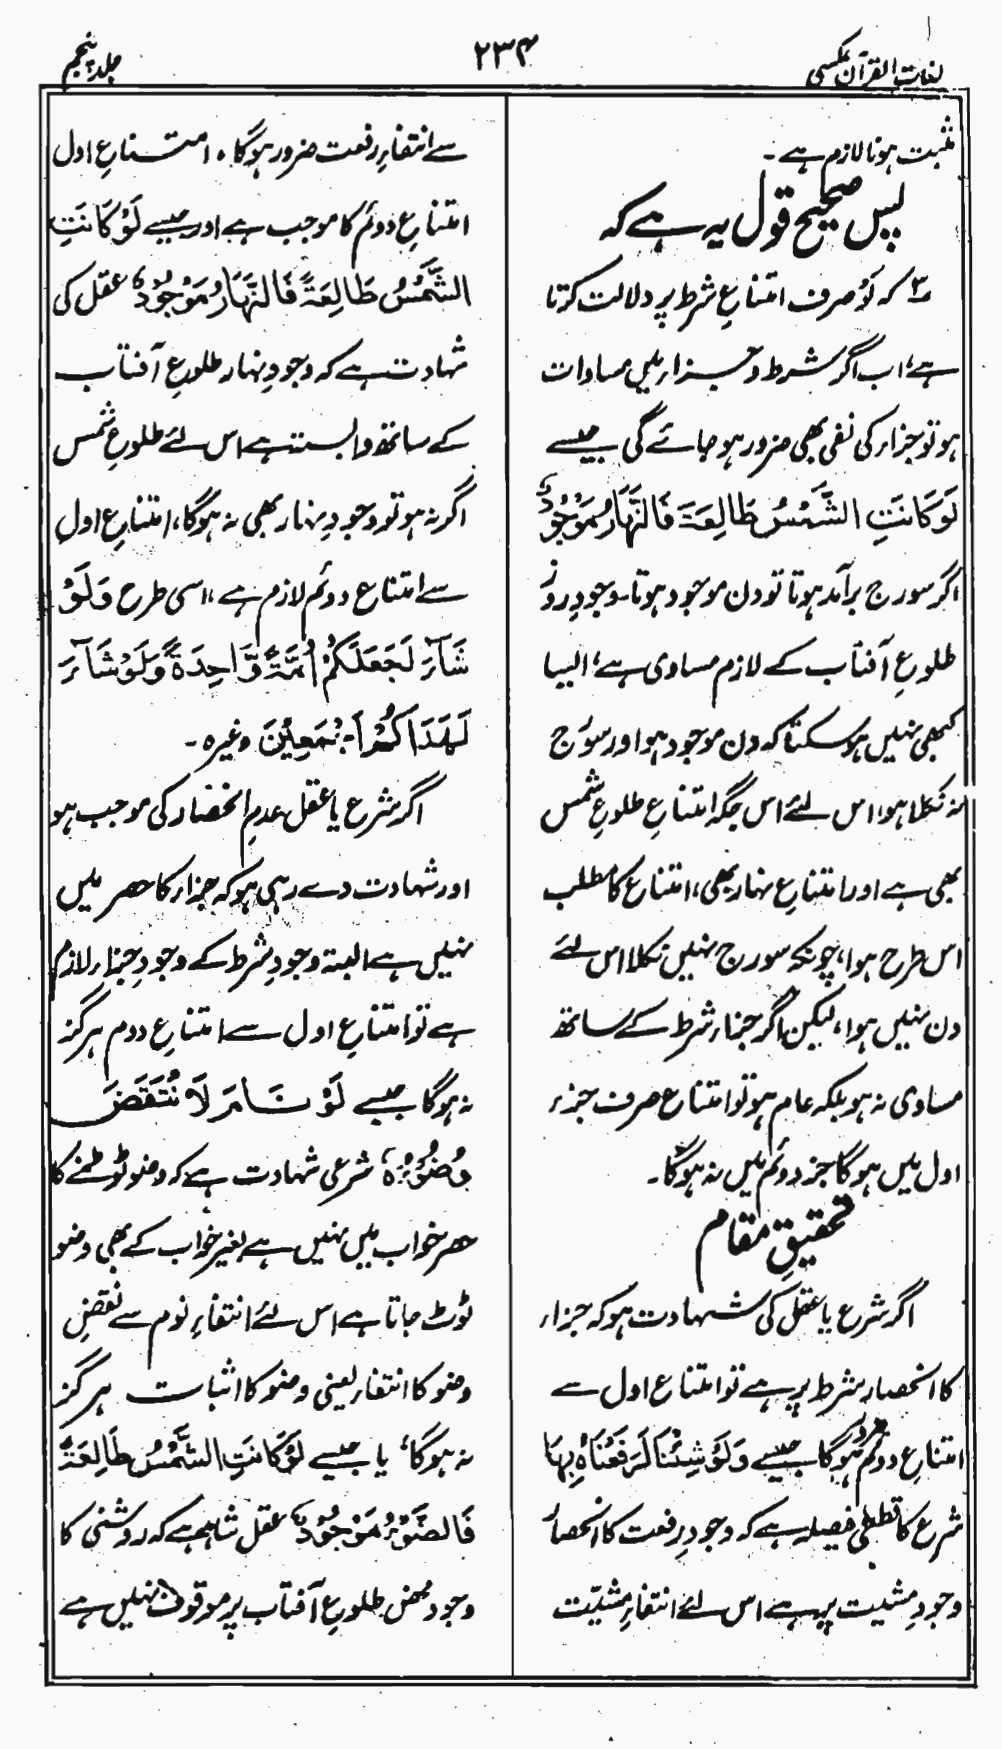 لغات القرآن عکسی
۲۳۴
جلد پنجم
مثبت ہونا لازم ہے۔
پس صحیح قول یہ ہے کہ
۳ کہ لَوْ صرف امتناعِ شرط پر دلالت کرتا
ہے، اب اگر شرط و جزار میں مساوات
ہو تو جزار کی نفی بھی ضرور ہو جائے گی جیسے
لَوْ كَانَتِ الشَّمْسُ طَالِعَةً فَالنَّهَارُ مَوْجُودٌ
اگر سورج برآمد ہوتا تو دن موجود ہوتا۔ وجودِ روز
طلوعِ آفتاب کے لازم مساوی ہے، ایسا
کبھی نہیں ہو سکتا کہ دن موجود ہو اور سورج
نہ نکلا ہو، اس لئے اس جگہ امتناعِ طلوعِ شمس
بھی ہے اور امتناعِ نہار بھی، امتناع کا مطلب
اس طرح ہوا، چونکہ سورج نہیں نکلا اس لئے
دن نہیں ہوا، لیکن اگر جزار شرط کے ساتھ
مساوی نہ ہو بلکہ عام ہو تو امتناع صرف جزء
اول میں ہوگا جزء دوئم میں نہ ہوگا۔
تحقیقِ مقام
اگر شرع یا عقل کی شہادت ہو کہ جزار
کا انحصار شرط پر ہے تو امتناع اول سے
امتناعِ دوئم ضرور ہوگا جیسے وَلَوْ شِئْنَا لَرَفَعْنَاهُ بِهَا
شرع کا قطعی فیصلہ ہے کہ وجودِ رفعت کا انحصار
وجودِ مشیت پر ہے اس لئے انتفارِ مشیّت
سے انتفارِ رفعت ضرور ہوگا، امتناعِ اول
امتناعِ دوئم کا موجب ہے اور جیسے لَوْ كَانَتِ
الشَّمْسُ طَالِعَةً فَالنَّهَارُ مَوْجُودٌ عقل کی
شہادت ہے کہ وجودِ نہار طلوعِ آفتاب
کے ساتھ وابستہ ہے اس لئے طلوعِ شمس
اگر نہ ہو تو وجودِ نہار بھی نہ ہوگا، امتناعِ اول
سے امتناعِ دوئم لازم ہے، اسی طرح وَلَوْ
شَآءَ لَجَعَلَكُمْ اُمَّةً وَّاحِدَةً وَلَوْ شَآءَ
لَهَدَاكُمْ اَجْمَعِيْنَ وغیرہ۔
اگر شرع یا عقل عدمِ انحصار کی موجب ہو
اور شہادت دے رہی ہو کہ جزار کا حصر میں
نہیں ہے البتہ وجودِ شرط کے وجودِ جزار لازم
ہے تو امتناعِ اول سے امتناعِ دوم ہرگز
نہ ہوگا جیسے لَوْ نَامَ لَانْتَقَضَ
وُضُوْءُهٗ شرعی شہادت ہے کہ وضو ٹوٹنے کا
حصر خواب میں نہیں ہے بغیر خواب کے بھی وضو
ٹوٹ جاتا ہے اس لئے انتفارِ نوم سے نقضِ
وضو کا انتفار یعنی وضو کا اثبات ہرگز
نہ ہوگا، یا جیسے لَوْ كَانَتِ الشَّمْسُ طَالِعَةً
فَالضَّوْءُ مَوْجُودٌ عقل شاہد ہے کہ روشنی کا
وجود محض طلوعِ آفتاب پر موقوف نہیں ہے